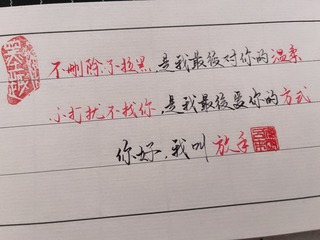 不删除不拉黑,是我最后对你的温柔
不打扰不找你,是我最后爱你的方式
你好,我叫放手